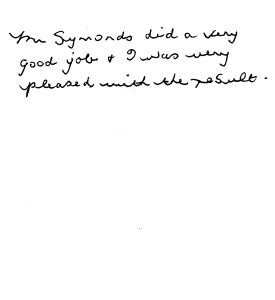 Mr Symonds did a very
good job & I was very
pleased with the result.